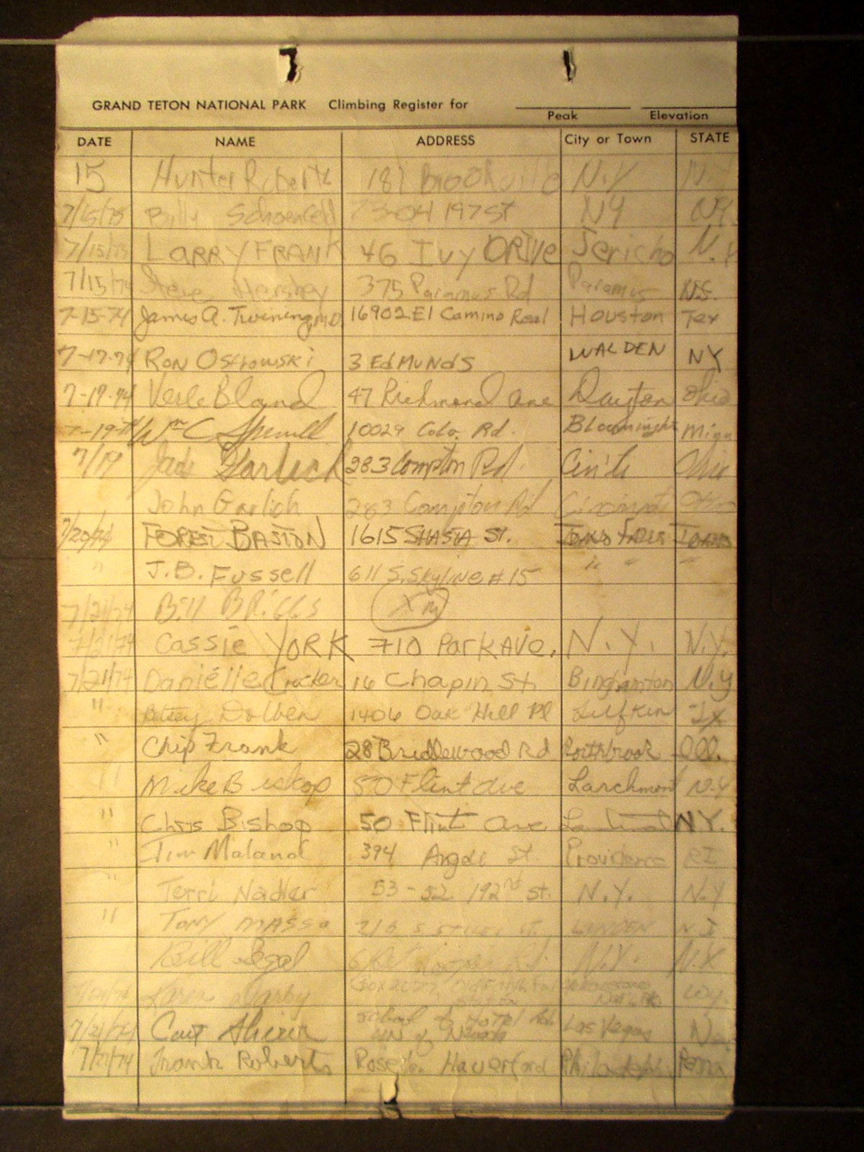 GRAND TETON NATIONAL PARK Climbing Register for
Peak Elevation
DATE NAME ADDRESS City or Town STATE
15 Hunter Roberts 181 Brookville N.Y N.Y
7/15/75 Billy 73-04 197 ST NY NY.
7/15/75 LARRY FRANK 46 IVY DRIVE Jericho N.Y
7/15/74 Steve Harshey 375 Paramus Rd Paramus N.J.
7-15-74 James A. Twining, M.D. 16902 El Camino Real Houston Tex
7-17-74 RON OSTROWSKI 3 EDMUNDS WALDEN NY
7-19-74 Verle Bland 47 Richmond Ave Dayton Ohio
7-19-74 Wm C 10029 Colo. Rd. Minn
7/19 Jack Garlich 283 Compton Rd. Cin'ti Ohio
John Garlich 283 Compton Rd Cincinnati Ohio
7/20/74 FOREST BASTON 1615 SHASTA ST. IDAHO FALLS IDAHO
" J.B. Fussell 611 S. Skyline #15 " " "
7/21/74 Bill BRIGGS
7/21/74 CASSIE YORK 710 Park AVe. N.Y. N.Y.
7/21/74 Danielle Crocker 16 Chapin St. Binghamton N.Y
" Betsy Dolben 1406 Oak Hill Pl Lufkin Tx
" Chip Frank 28 Bridlewood Rd Northbrook Ill.
" Mike Bishop 50 Flint ave Larchmont N.Y
" Chris Bishop 50 Flint Ave NY.
" Tim Maland 394 Angell St. Providence RI
" Terri Nadler 53-52 192nd St. N.Y. N.Y
" TONY MASSO LINDEN N.J
Bill Segal Rd. N.Y. N.Y
Karen Darby Wy.
7/21/74 Curt School of Hotel Ad. UN of Nevada Las Vegas N.
7/21/74 Frank Roberts Rose Ln Haverford Philadelphia Penn